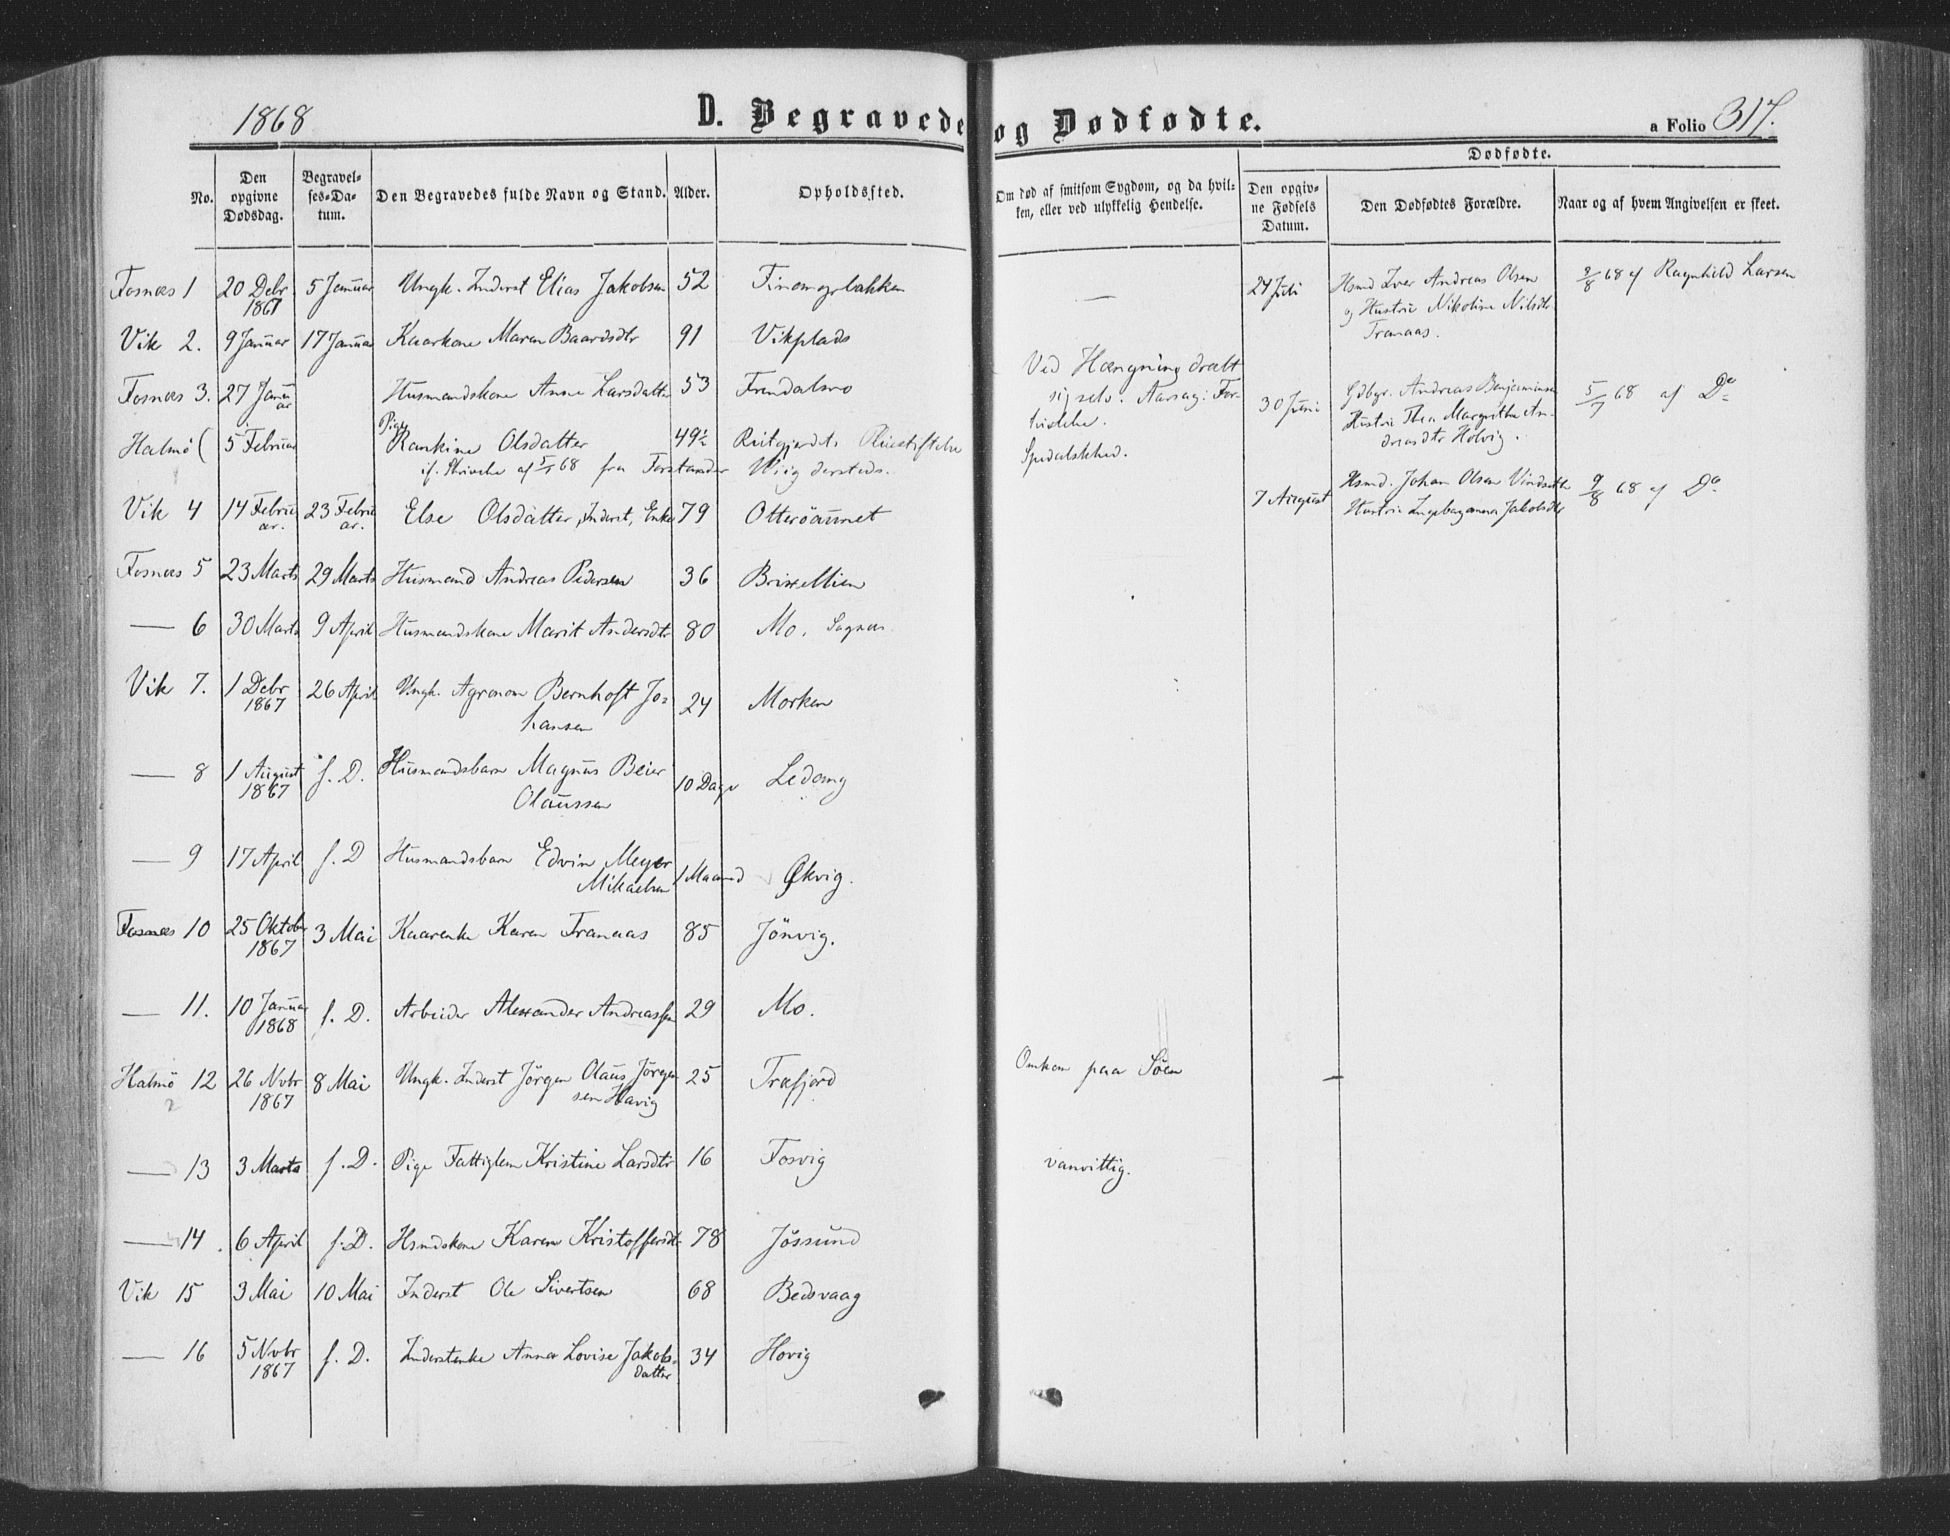 1868
D. Begravede og Dødfødte.
a Folio 317.
No.
Den opgivne Dødsdag.
Begravelses-Datum.
Den Begravedes fulde Navn og Stand.
Alder.
Opholdssted.
Om død af smitsom Sygdom, og da hvilken, eller ved ulykkelig Hendelse.
Dødfødte.
Den opgivne Fødsels Datum.
Den Dødfødtes Forældre.
Naar og af hvem Angivelsen er skeet.
Fosnæs 1 20 Debr 1867 5 Januar Ungk. Inderst Elias Jakobsen 52 —
Vik 2. 9 Januar 17 Januar Kaarkone Maren Baardsdtr 91 Vikplads
Fosnæs 3. 27 Januar Husmandskone Anne Larsdatter 53 Ved Hængning dræbt
sig selv. Aarsag: For-
tvivlelse.
Halmø ( 5 Februar Pige Olsdatter 49½ Reitgjerdets Pleiestiftelse Spedalskhed.
5/1 68 fra Forstander
Vik 4 14 Februar. 23 Februar. Else Olsdatter, Inderst, Enke 79 Otterøaunet
Fosnæs 5 23 Marts 29 Marts Husmand Andreas Pedersen 36
— 6 30 Marts 9 April Husmandskone Marit Andersdtr 80 Mo.
Vik 7. 1 Debr 1867 26 April Ungk. Agronom Bernhoft Jo-
hansen 24 Morken
— 8 1 August 1867 f. D. Husmandsbarn Magnus Beier
Olaussen 10 Dage Ledang
— 9 17 April f. D Husmandsbarn Edvin Meyer
Mikaelsen 1 Maaned Økvig.
Fosnæs 10 25 Oktobr 1867 3 Mai Kaarenke Karen Tranaas 85 Jönvig.
— 11. 10 Januar 1868 f. D. Arbeider Alexander Andreassen 29 Mo.
Halmö 12 26 Nvbr 1867 8 Mai Ungk. Inderst Jörgen Olaus Jörgen-
sen Havig 25 Træfjord Omkom paa Söen —
— 13 3 Marts f. D. Pige Fattiglem Kristine Larsdtr 16 Fosvig vanvittig.
— 14. 6 April f. D. Hsmdskone Karen Kristoffersdtr 78 Jössund
Vik 15 3 Mai 10 Mai Inderst Ole Sivertsen 68 Bedsvaag
— 16 5 Nvbr 1867 f. D. Inderstenke Anna Lovise Jakobs-
datter 34 Hovig
24 Juli Hsmd Iver Andreas Olsen 8/8 68 af Ragnhild Larsen
og Hustru Nikoline Nilsdtr
Tranaas.
30 Juni Gdbgr. Andreas Benjaminsen 5/7 68 af Do
Hustru Thea Margrethe An-
dreasdtr Hovig.
7 August Hsmd. Johan Olsen 9/8 68 af Do
Hustru Jakobsdtr